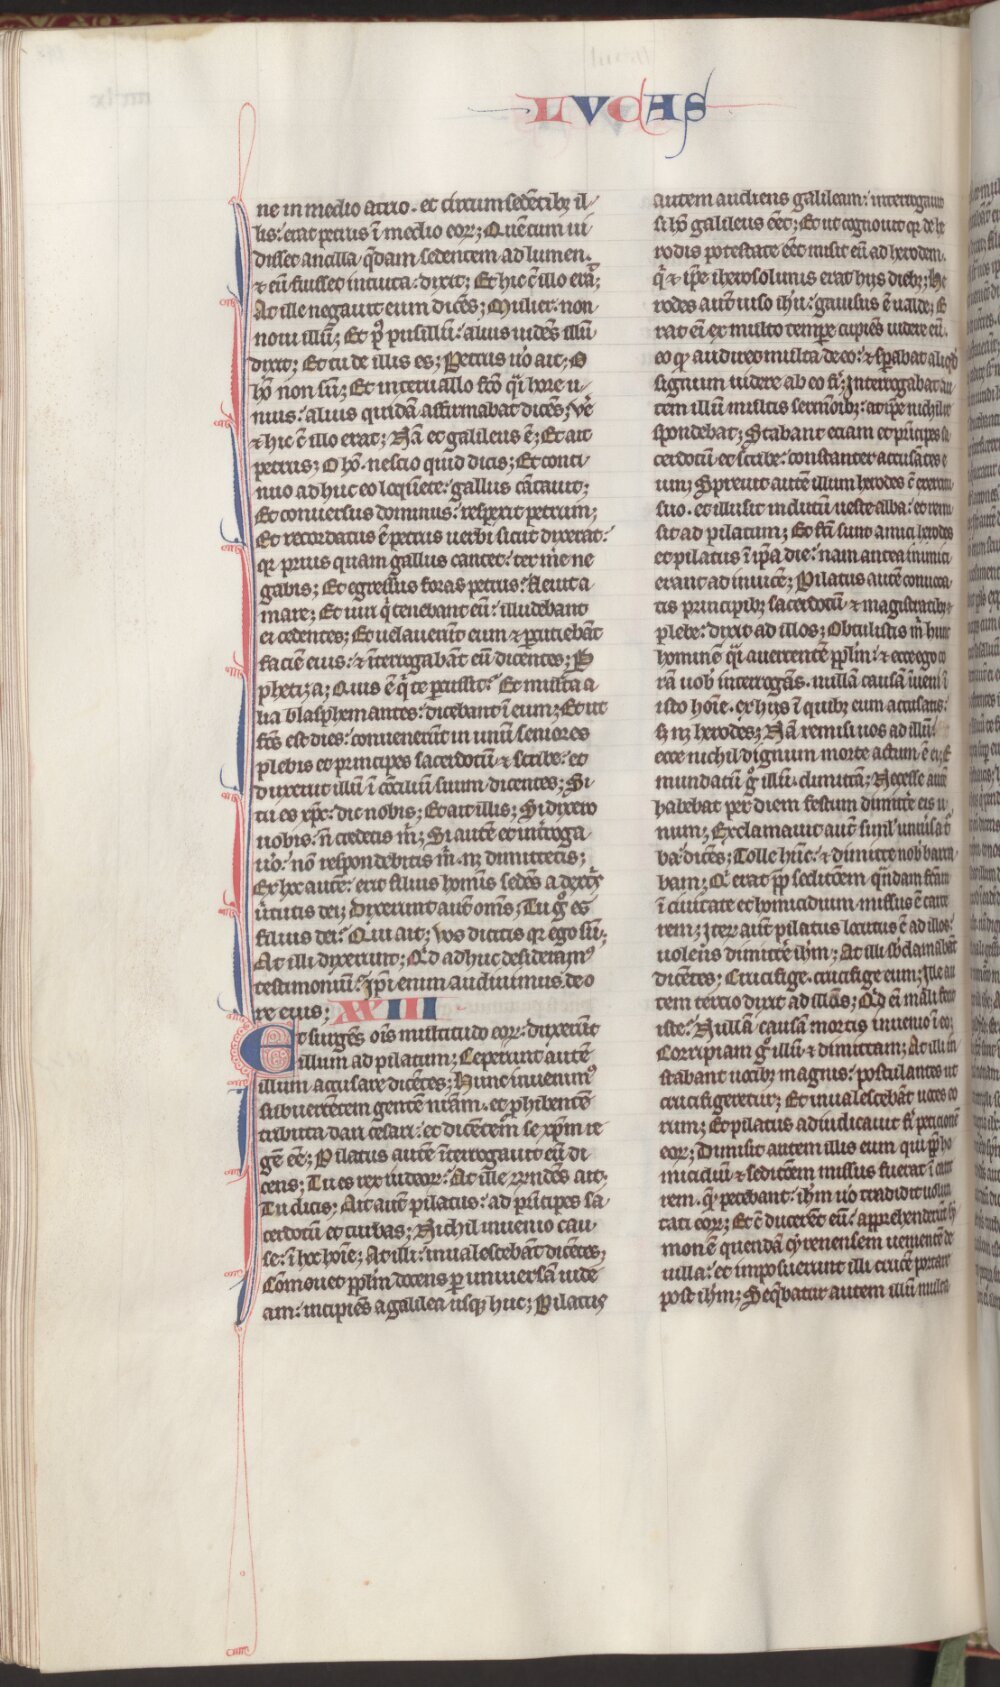 LVCAS
ne in medio atrio. et circum sedẽtibꝫ il/
lis: erat petrus ĩ medio eoꝝ; Quẽ cum ui
disset ancilla q̃dam sedentem ad lumen.
⁊ eũ fuisset intuita: dixit; Et hic c̃ illo erat̃;
At ille negauit eum dicẽs; Mulier. non
noui illũ; Et pꝰ pusillũ: alius uidẽs illũ
dixit; Et tu de illis es; Petrus ũo ait; O
hõ non sũ; Et interuallo fc̃o q̃i hore u/
nius: alius quidã affirmabat dicẽs; Ve͛
⁊ hic c̃ illo erat; Nã et galileus ẽ; Et ait
petrus; O hõ. nescio quid dicis; Et conti/
nuo adhuc eo loq̃uẽte: gallus cãtauit;
Et conuersus dominus: respexit petrum;
Et recordatus ẽ petrus uerbi sicut dixerat:
qꝛ prius quam gallus cantet: ter me ne
gabis; Et egressus foras petrus: fleuit a
mare; Et uiri q̇ tenebant eũ: illudebant
ei cedentes; Et uelauerũt eum ⁊ ꝑcutiebãt
faciẽ eius: ⁊ ĩterrogabãt eũ dicentes; Ꝓ
phetiza; Quis ẽ q̇ te ꝑcussit: Et multa a
lia blasphemantes: dicebant ĩ eum; Et ut
fc̃s est dies: conuenerũt in unũ seniores
plebis et principes sacerdotũ ⁊ scribe: et
duxerũt illũ ĩ cõciliũ suum dicentes; Si
tu es xp̃c: dic nobis; Et ait illis; Si dixero
uobis: ñ credetis m̃; Si autẽ et int̃roga
ũo: nõ respondebitis m̃. nꝫ dimittetis;
Ex hoc autẽ: erit filius hominis sedẽs a dext͛s
ũtutis dei; Dixerunt aut̃ om̃s; Tu g̊ es
filius dei: Qui ait; Vos dicitis qꝛ ego sũ;
At illi dixerũt; Qͥd adhuc desideramꝰ
testimoniũ: Ip̃i enim audiuimus de o
re eius; XXIII
Et surgẽs oĩs multitudo eoꝝ: duxerũt
illum ad pilatum; Ceperunt autẽ
illum accusare dicẽtes; Hunc inuenimꝰ
subuertẽtem gentẽ nr̃am. et ꝓhibentẽ
tributa dari cesari: et dicẽtem se xp̃m re
gẽ eẽ; Pilatus autẽ ĩterrogauit eũ di
cens; Tu es rex iudeoꝝ: At ille rñdẽs ait;
Tu dicis; Ait aut̃ pilatus: ad prĩcipes sa/
cerdotũ et turbas; Nichil inuenio cau/
se: ĩ hoc hoĩe; At illi: inualescebãt dicẽtes;
Cõmouet pp̃lm docens ꝑ uniuersã iude
am: incipiẽs a galilea usqꝫ huc; Pilatus
autem audiens galileam: interrogauit
si hõ galileus eẽt; Et ut cognouit qꝛ de he
rodis potestate eẽt: misit eũ ad herodem.
q̇ ⁊ ip̃e iherosolimis erat hijs diebꝫ; He
rodes aut̃ uiso ihũ: gauisus ẽ ualde; E
rat eĩ ex multo tempe cupiẽs uidere eũ.
eo ꝙ audiret multa de eo: ⁊ sꝑabat aliqͥd
signum uidere ab eo fi͛; Interrogabat au
tem illũ multis sermõibꝫ: at ip̃e nichil re
spondebat; Stabant eciam et prĩcipes sa
cerdotũ et scribe: constanter accusãtes e
um; Spreuit autẽ illum herodes c̃ exercitu
suo. et illusit indutũ ueste alba: et remi
sit ad pilatum; Et fc̃i sunt amici herodes
et pilatus ĩ ip̃a die: nam antea inimici
erant ad inuicẽ; Pilatus autẽ conuoca/
tis principibꝫ sacerdotũ ⁊ magistratibꝫ ⁊
plebe: dixit ad illos; Obtulistis m̃ hunc
hominẽ q̃i auertentẽ pp̃lm: ⁊ ecce ego co
rã uob̃ interrogãs. nullã causã ĩueni ĩ
isto hoĩe. ex hijs ĩ quibꝫ eum accusatis:
sꝫ nꝫ herodes; Nã remisi uos ad illũ:
ecce nichil dignum morte actum ẽ ei; E
mundatũ g̊ illũ. dimittã; Necesse aut̃
habebat per diem festum dimitte͛ eis u
num; Exclamauit aut̃ simĺ uniũsa tʳ
ba dicẽs; Tolle hũc: ⁊ dimitte nob̃ barra/
bam; Qͥ erat ꝓp̃ sedic̃õem qñdam fc̃am
ĩ ciuitate et homicidium: missus ẽ carce
rem; Iter̃ aut̃ pilatus locutus ẽ ad illos:
uolens dimitte͛ ihm̃; At illi sb̃clamabãt
dicẽtes; Crucifige. crucifige eum; Ille au
tem tercio dixit ad illos; Qͥd eĩ mali fecit
iste: Nullã causã mortis inuenio ĩ eo;
Corripiam g̊ illũ ⁊ dimittam; At illi in
stabant uocibꝫ magnis: postulantes ut
crucifigeretur; Et inualescebãt uoces eo
rum; Et pilatus adiudicauit fi͛ peticionẽ
eoꝝ; Dimisit autem illis eum qui ꝓp̃ ho
micidiũ ⁊ sedic̃õem missus fuerat ĩ carce
rem. quẽ petebant: ihm̃ ũo tradidit uolun
tati eoꝝ; Et c̃ ducer̃t eũ: apprehenderũt sy
monẽ quendã cyrenensem uenientẽ de
uilla: et imposuerunt illi crucẽ portare
post ihm̃; Seq̃batur autem illũ multa